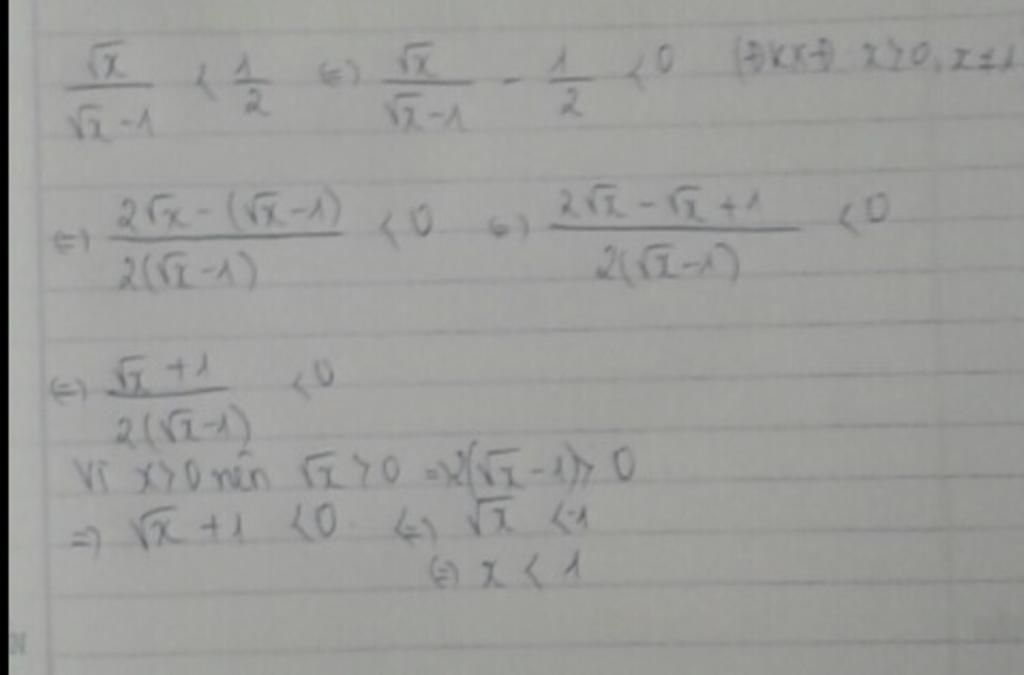 √x/(√x-1) < 1/2 (=) √x/(√x-1) - 1/2 < 0 (ĐKXĐ x>0, x≠1
(=) (2√x-(√x-1))/(2(√x-1)) < 0 (=) (2√x-√x+1)/(2(√x-1)) < 0
(=) (√x+1)/(2(√x-1)) < 0
Vì x>0 nên √x>0 =>2(√x-1)> 0
=) √x+1 <0 (=) √x <-1
(=) x < 1
N